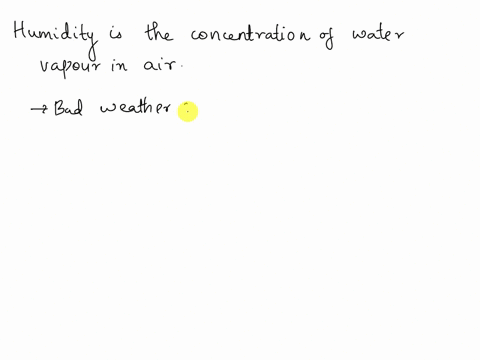 Humidity is the concentration of water
vapour in air.
→ Bad weather :